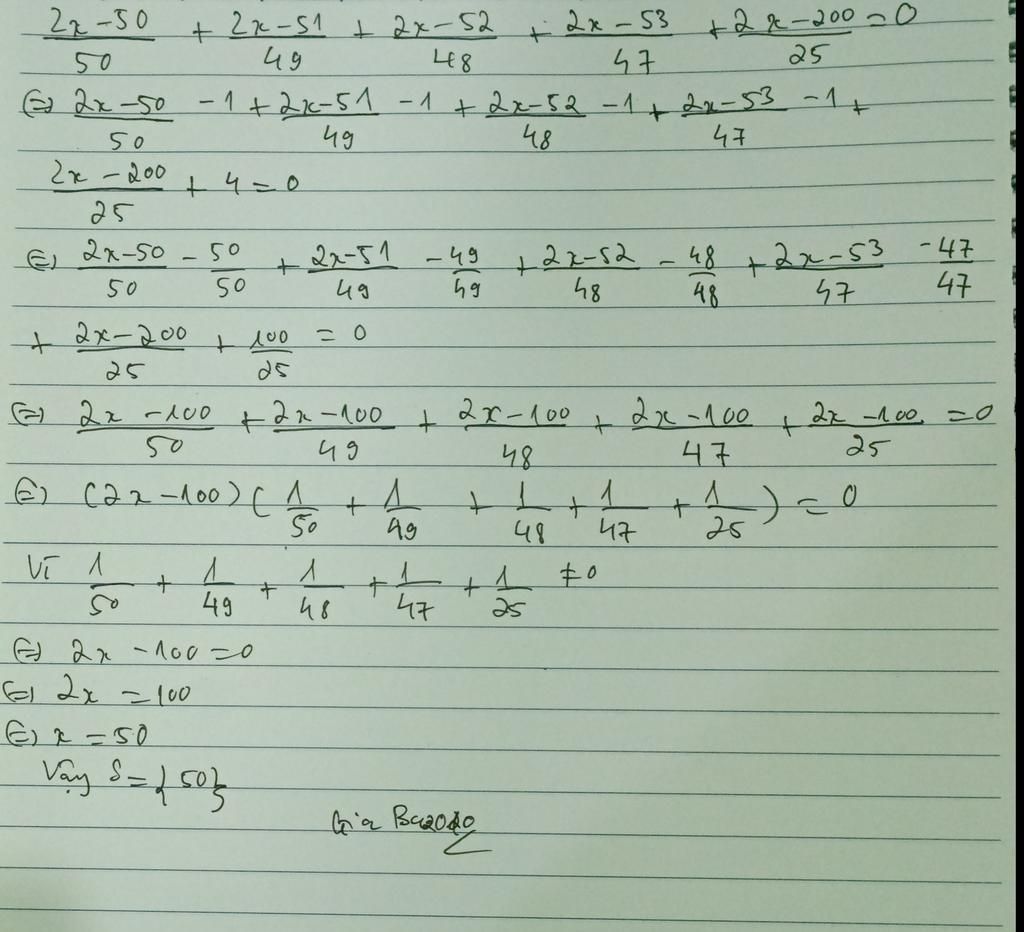 (2x-50)/50 + (2x-51)/49 + (2x-52)/48 + (2x-53)/47 + (2x-200)/25 = 0
(=) (2x-50)/50 - 1 + (2x-51)/49 - 1 + (2x-52)/48 - 1 + (2x-53)/47 - 1 +
(2x-200)/25 + 4 = 0
(=) (2x-50)/50 - 50/50 + (2x-51)/49 - 49/49 + (2x-52)/48 - 48/48 + (2x-53)/47 - 47/47
+ (2x-200)/25 + 100/25 = 0
(=) (2x-100)/50 + (2x-100)/49 + (2x-100)/48 + (2x-100)/47 + (2x-100)/25 = 0
(=) (2x-100)(1/50 + 1/49 + 1/48 + 1/47 + 1/25) = 0
Vì 1/50 + 1/49 + 1/48 + 1/47 + 1/25 ≠ 0
(=) 2x - 100 = 0
(=) 2x = 100
(=) x = 50
Vậy S = {50}
Gia